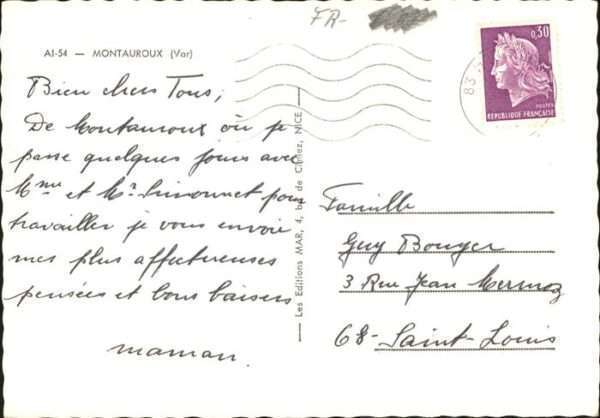 FR-
AI-54 — MONTAUROUX (Var)
0,30
POSTES
REPUBLIQUE FRANÇAISE
83
Bien chers Tous,
De Montauroux où je
passe quelques jours avec
Mme et Mr Simonnet pour
travailler je vous envoie
mes plus affectueuses
pensées et bons baisers
maman.
Les Editions MAR, 4, de Cimiez, NICE
Famille
Guy Bouger
3 Rue Jean Mermoz
68- Saint-Louis